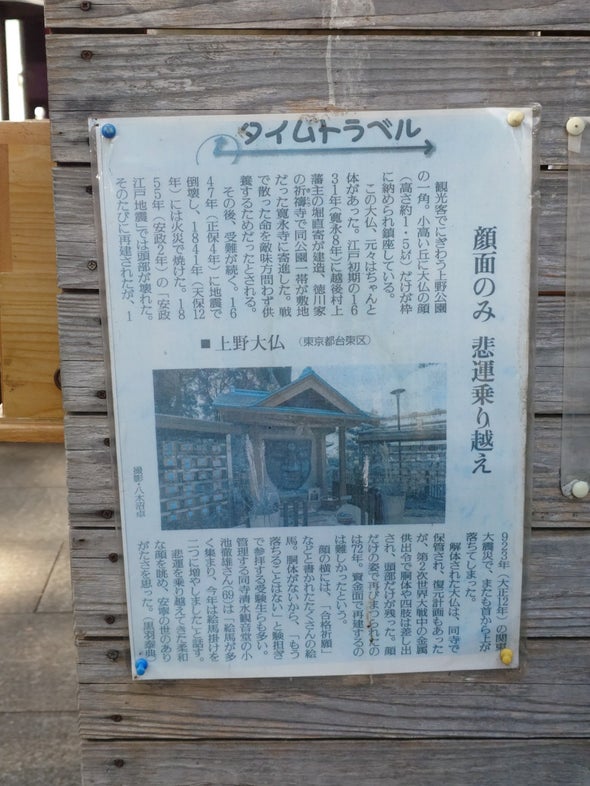 タイムトラベル
顔面のみ 悲運乗り越え
観光客でにぎわう上野公園
の一角。小高い丘に大仏の顔
(高さ約1・5㍍)だけが枠
に納められ鎮座している。
この大仏、元々はちゃんと
体があった。江戸初期の16
31年(寛永8年)に越後村上
藩主の堀直寄が建造、徳川家
の祈禱寺で同公園一帯が敷地
だった寛永寺に寄進した。戦
で散った命を敵味方問わず供
養するためだったとされる。
その後、受難が続く。16
47年(正保4年)に地震で
倒壊し、1841年(天保12
年)には火災で焼けた。18
55年(安政2年)の「安政
江戸地震」では頭部が壊れた。
そのたびに再建されたが、1
■上野大仏 (東京都台東区)
撮影・八木沼卓
923年(大正12年)の関東
大震災で、またも首から上が
落ちてしまった。
解体された大仏は、同寺で
保管され、復元計画もあった
が、第2次世界大戦中の金属
供出令で胴体や四肢は差し出
され、頭部だけが残った。顔
だけの姿で再びまつられたの
は72年。資金面で再建するの
は難しかったという。
顔の横には、「合格祈願」
などと書かれたたくさんの絵
馬。胴体がないから、「もう
落ちることはない」と験担ぎ
で参拝する受験生らも多い。
管理する同寺清水観音堂の小
池徹雄さん(69)は「絵馬が多
く集まり、今年は絵馬掛けを
二つに増やしました」と話す。
悲運を乗り越えてきた柔和
な顔を眺め、安寧の世のあり
がたさを思った。「黒羽泰典」